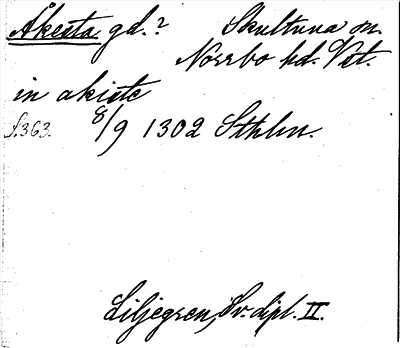 Åkesta gd.? Skultuna sn.
Norrbo hd. Vst.
in akiste
S. 363. 8/9 1302 Sthlm.
Liljegren, Sv. dipl. II.